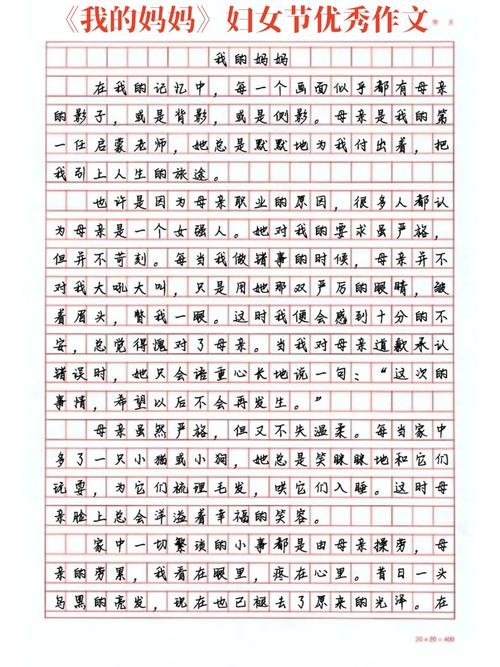 《我的妈妈》妇女节优秀作文
我的妈妈
在我的记忆中，每一个画面似乎都有母亲
的影子，或是背影，或是侧影。母亲是我的第
一任启蒙老师，她总是默默地为我付出着，把
我引上人生的旅途。
也许是因为母亲职业的原因，很多人都认
为母亲是一个女强人。她对我的要求虽严格，
但并不苛刻。每当我做错事的时候，母亲并不
对我大吼大叫，只是用她那双严厉的眼睛，皱
着眉头，瞥我一眼。这时我便会感到十分的不
安，总觉得愧对了母亲。当我对母亲道歉承认
错误时，她只会语重心长地说一句：“这次的
事情，希望以后不会再发生。”
母亲虽然严格，但又不失温柔。每当家中
多了一只小猫或小狗，她总是笑眯眯地和它们
玩耍，为它们梳理毛发，哄它们入睡。这时母
亲脸上总会洋溢着幸福的笑容。
家中一切繁琐的小事都是由母亲操劳，母
亲的劳累，我看在眼里，疼在心里。昔日一头
乌黑的亮发，现在也已褪去了原来的光泽。在
20×20=400